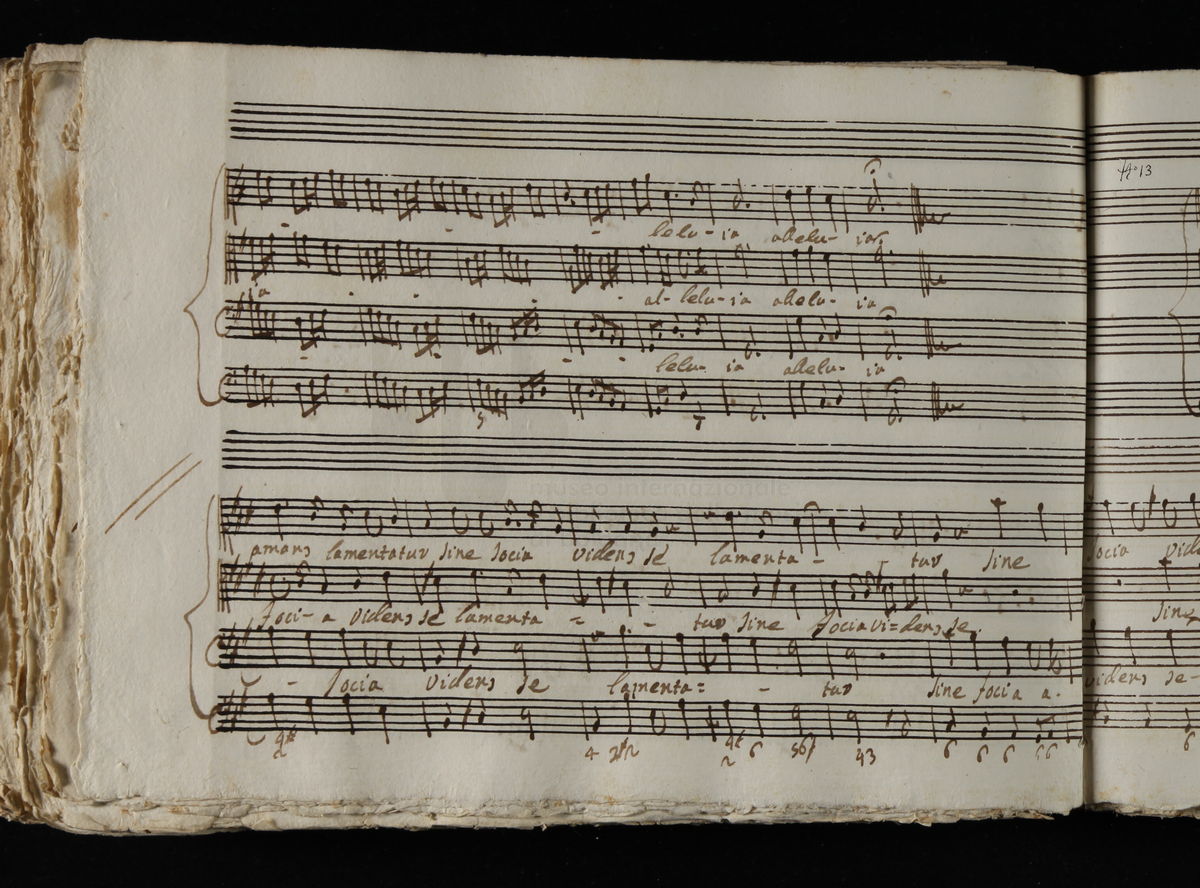 lelu-ia allelu-ia
ia al-lelu-ia allelu-ia
lelu-ia allelu-ia
museo internazionale
amans lamentatur sine socia videns se lamenta - - tur sine
soci-a videns se lamenta = - tur sine socia vi=dens se
- socia videns se lamenta= - tur sine socia a-
4 2
6
43
6 6 6
13
socia
sine
videns se-
6